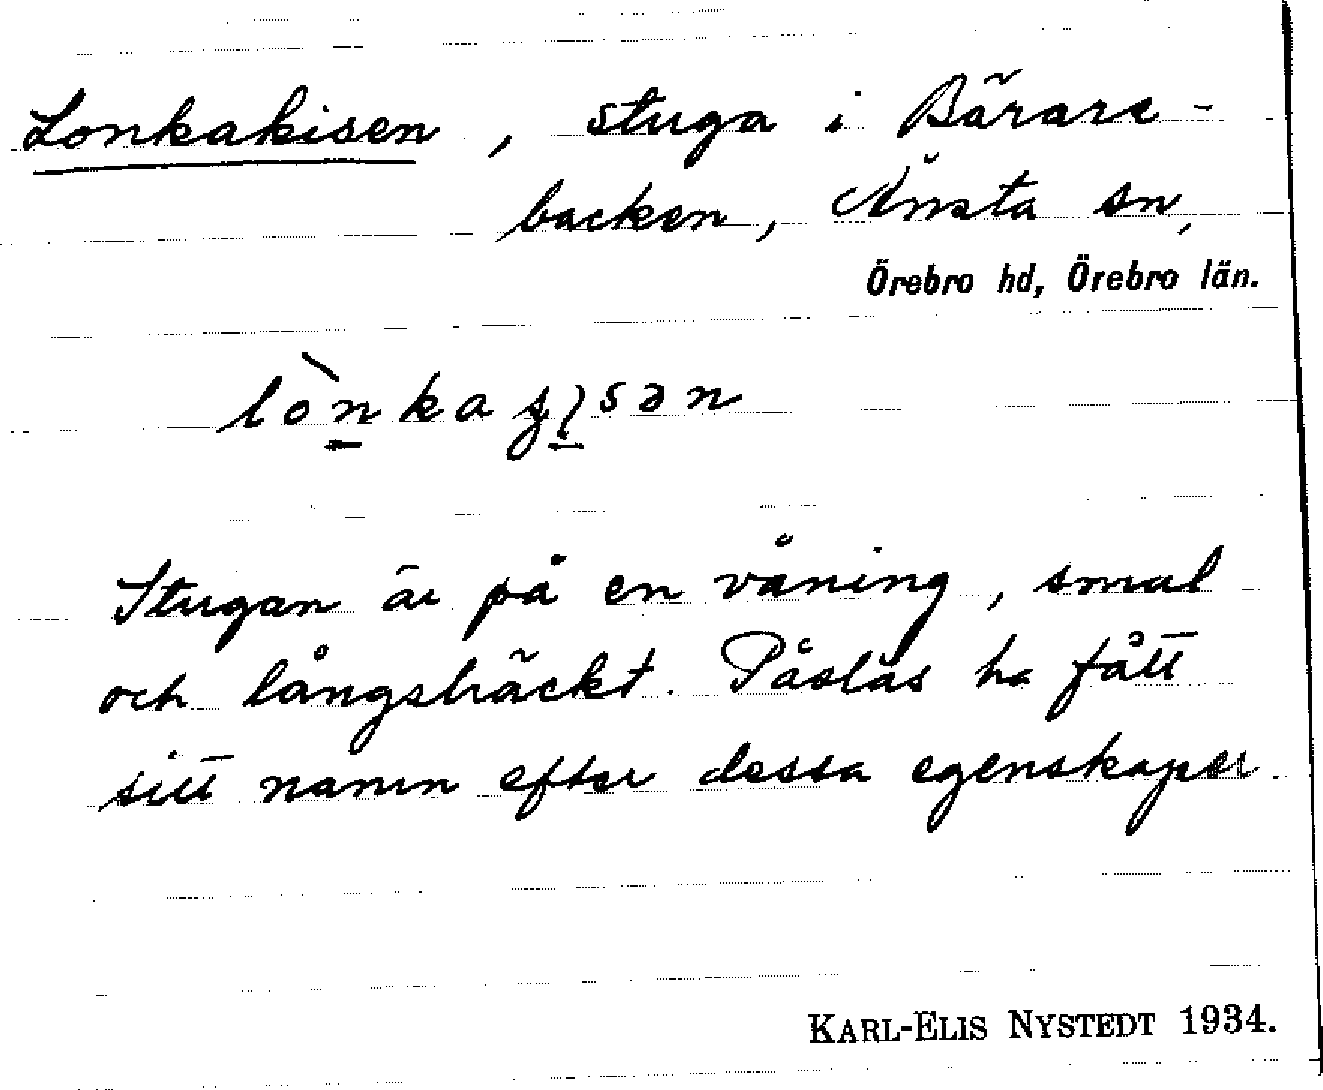 Lonkakisen, stuga i Bärare-
backen, Ånsta sn,
Örebro hd, Örebro län.
Stugan är på en våning, smal
och långsträckt. Påstås ha fått
sitt namn efter dessa egenskaper.
KARL-ELIS NYSTEDT 1934.